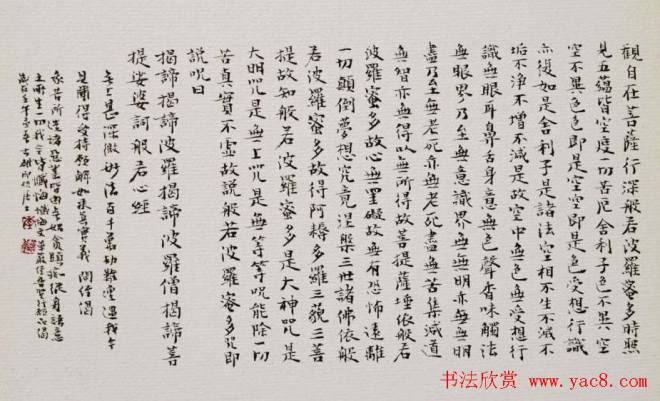 觀自在菩薩行深般若波羅蜜多時照
見五蘊皆空度一切苦厄舍利子色不異空
空不異色色即是空空即是色受想行識
亦復如是舍利子是諸法空相不生不滅不
垢不淨不增不減是故空中無色無受想行
識無眼耳鼻舌身意無色聲香味觸法
無眼界乃至無意識界無無明亦無無明
盡乃至無老死亦無老死盡無苦集滅道
無智亦無得以無所得故菩提薩埵依般若
波羅蜜多故心無罣礙故無有恐怖遠離
一切顛倒夢想究竟涅槃三世諸佛依般
若波羅蜜多故得阿耨多羅三藐三菩
提故知般若波羅蜜多是大神咒是
大明咒是無上咒是無等等咒能除一切
苦真實不虛故說般若波羅蜜多咒即
說咒曰
揭諦揭諦波羅揭諦波羅僧揭諦菩
提娑婆訶般若心經
無上甚深微妙法百千萬劫難遭遇我今
見聞得受持願解如來真實義 開經偈
我昔所造諸惡業皆由無始貪瞋癡從身語意
之所生一切我今皆懺悔
书法欣赏 www.yac8.com